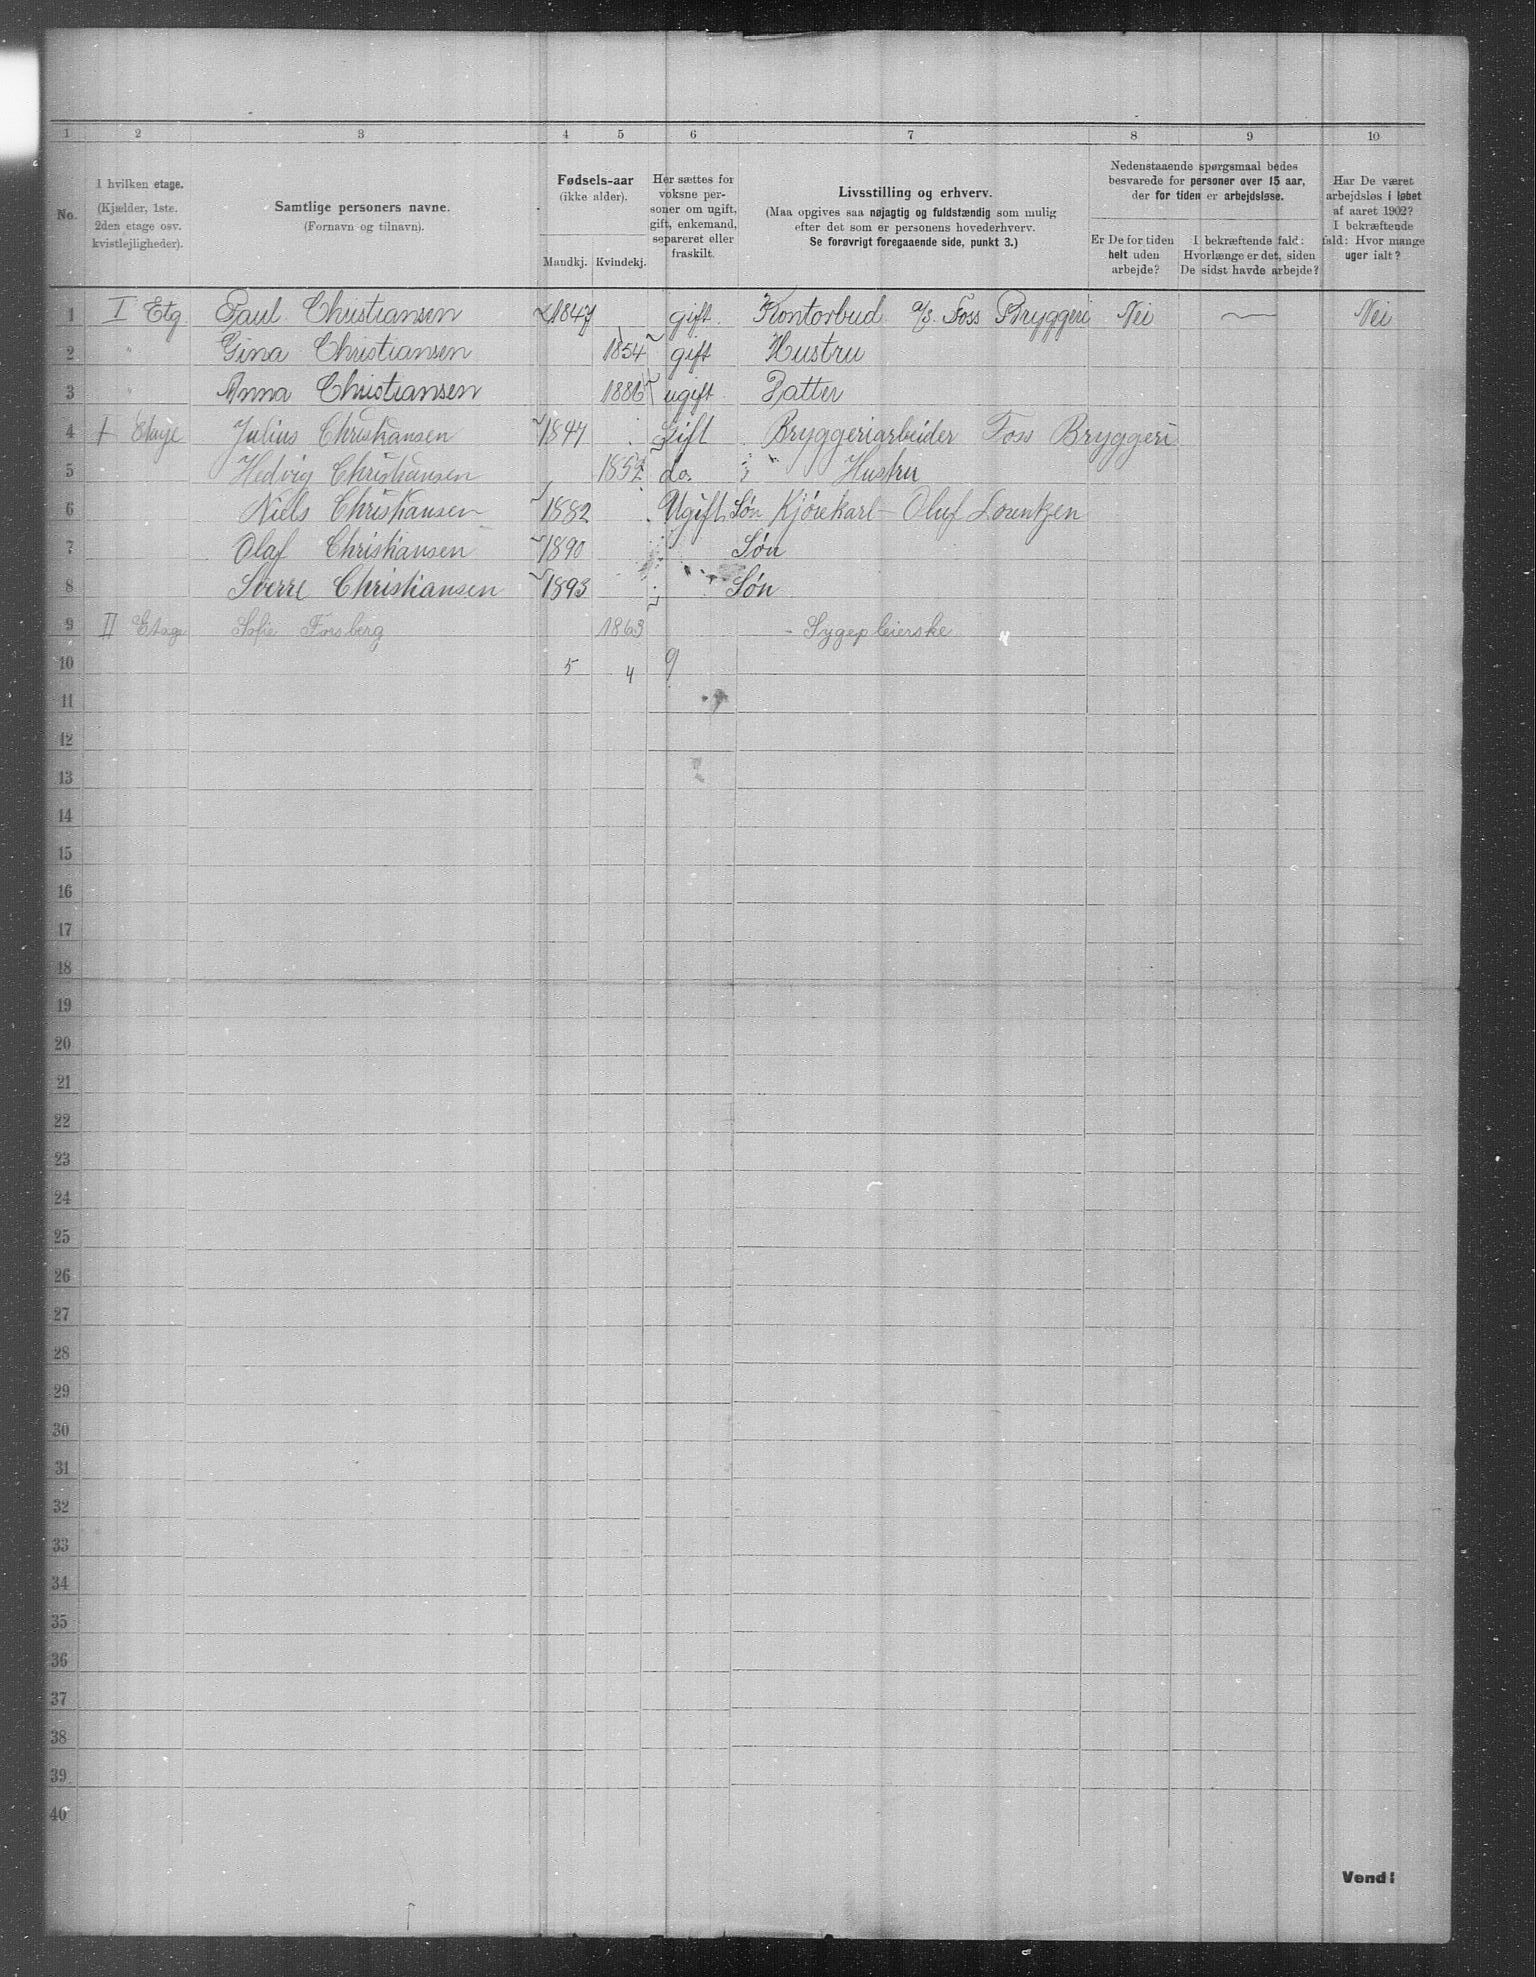 1 2 3 4 5 6 7 8 9 10
No.
I hvilken etage.
(Kjælder, 1ste.
2den etage osv.
kvistlejligheder).
Samtlige personers navne.
(Fornavn og tilnavn).
Fødsels-aar
(ikke alder).
Mandkj. Kvindekj.
Her sættes for
voksne per-
soner om ugift,
gift, enkemand,
separeret eller
fraskilt.
Livsstilling og erhverv.
(Maa opgives saa nøjagtig og fuldstændig som mulig
efter det som er personens hovederhverv.
Se forøvrigt foregaaende side, punkt 3.)
Nedenstaaende spørgsmaal bedes
besvarede for personer over 15 aar,
der for tiden er arbejdsløse.
Er De for tiden
helt uden
arbejde?
I bekræftende fald:
Hvorlænge er det, siden
De sidst havde arbejde?
Har De været
arbejdsløs i løbet
af aaret 1902?
I bekræftende
fald: Hvor mange
uger ialt?
1 I Etg Paul Christiansen 1847 gift. Kontorbud a/s. Foss Bryggeri Nei — Nei
2 " Gina Christiansen 1854 gift Hustru
3 " Anna Christiansen 1886 ugift Datter
4 I Etage Julius Christiansen 1847 Gift Bryggeriarbeider Foss Bryggeri
5 Hedvig Christiansen 1852 do. " Hustru
6 Niels Christiansen 1882 Ugift Søn Kjørekarl - Oluf Lountzen
7 Olaf Christiansen 1890 Søn
8 Sverre Christiansen 1893 Søn
9 II Etage Sofie Forsberg 1863 - Sygepleierske
10 5 4 9
11
12
13
14
15
16
17
18
19
20
21
22
23
24
25
26
27
28
29
30
31
32
33
34
35
36
37
38
39
40
Vend!